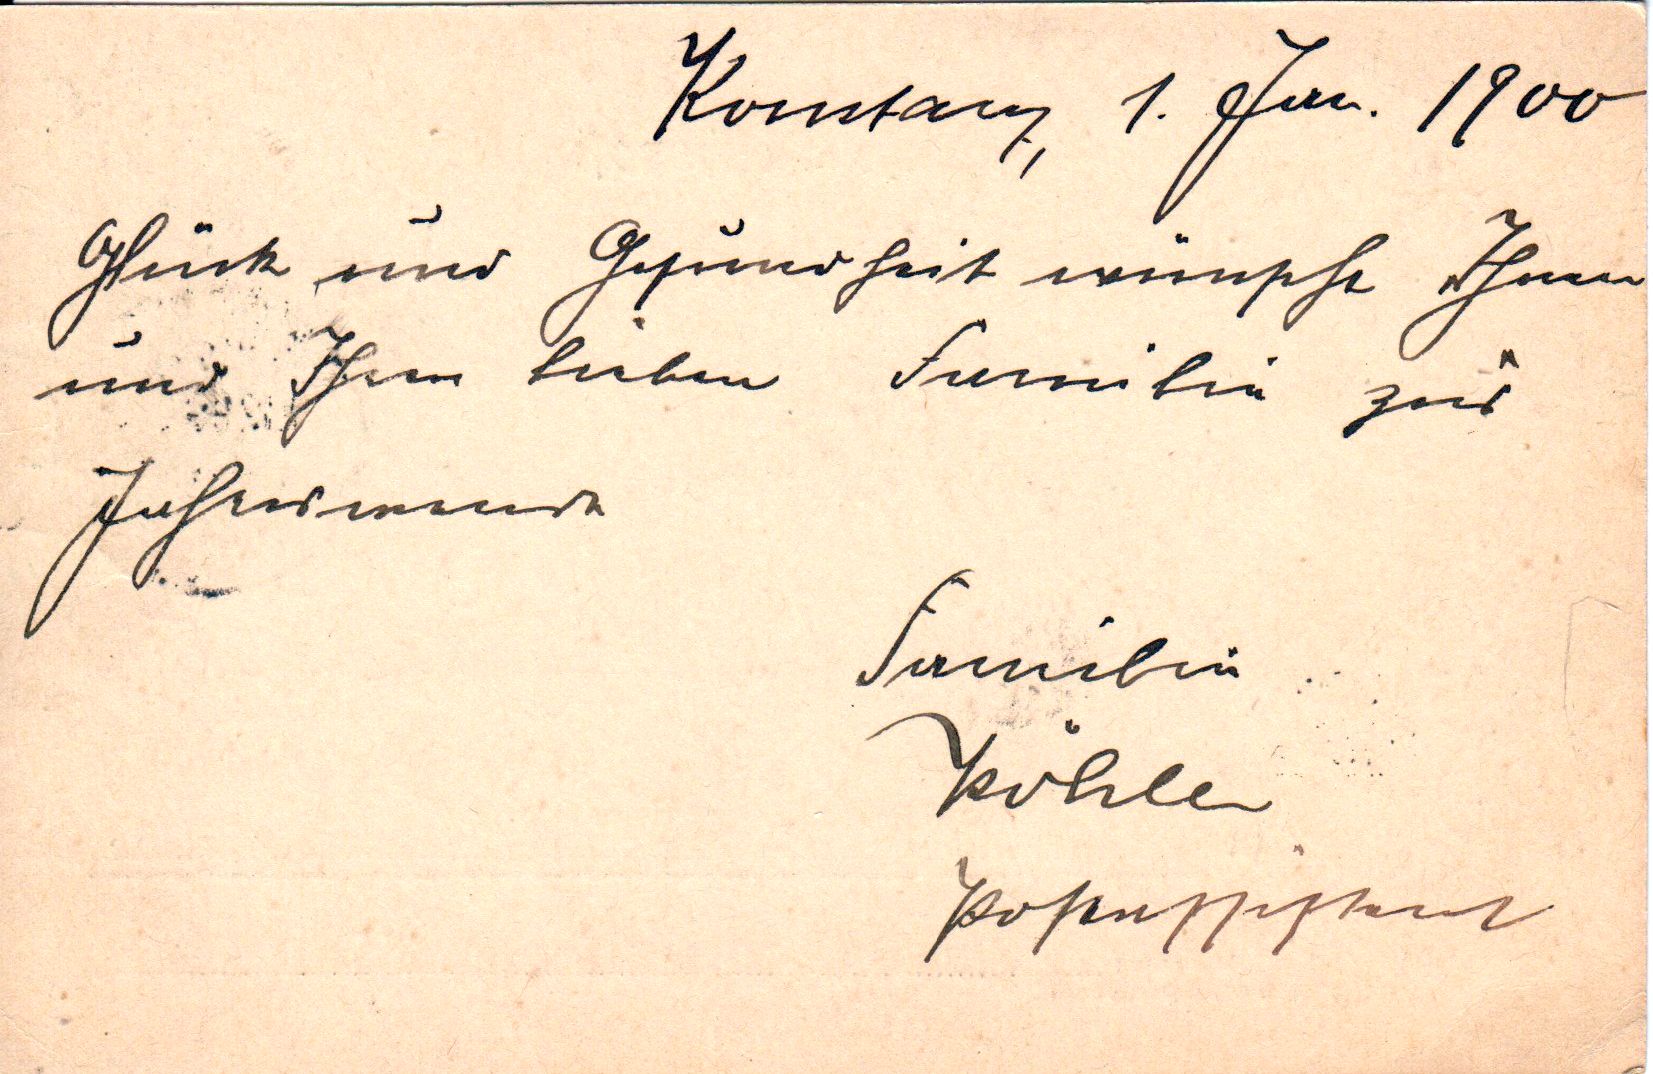 Konstanz, 1. Jan. 1900
Glück und Gesundheit wünscht Ihnen
und Ihrer lieben Familie zur
Jahreswende
Familie
Köhler
Postassistent